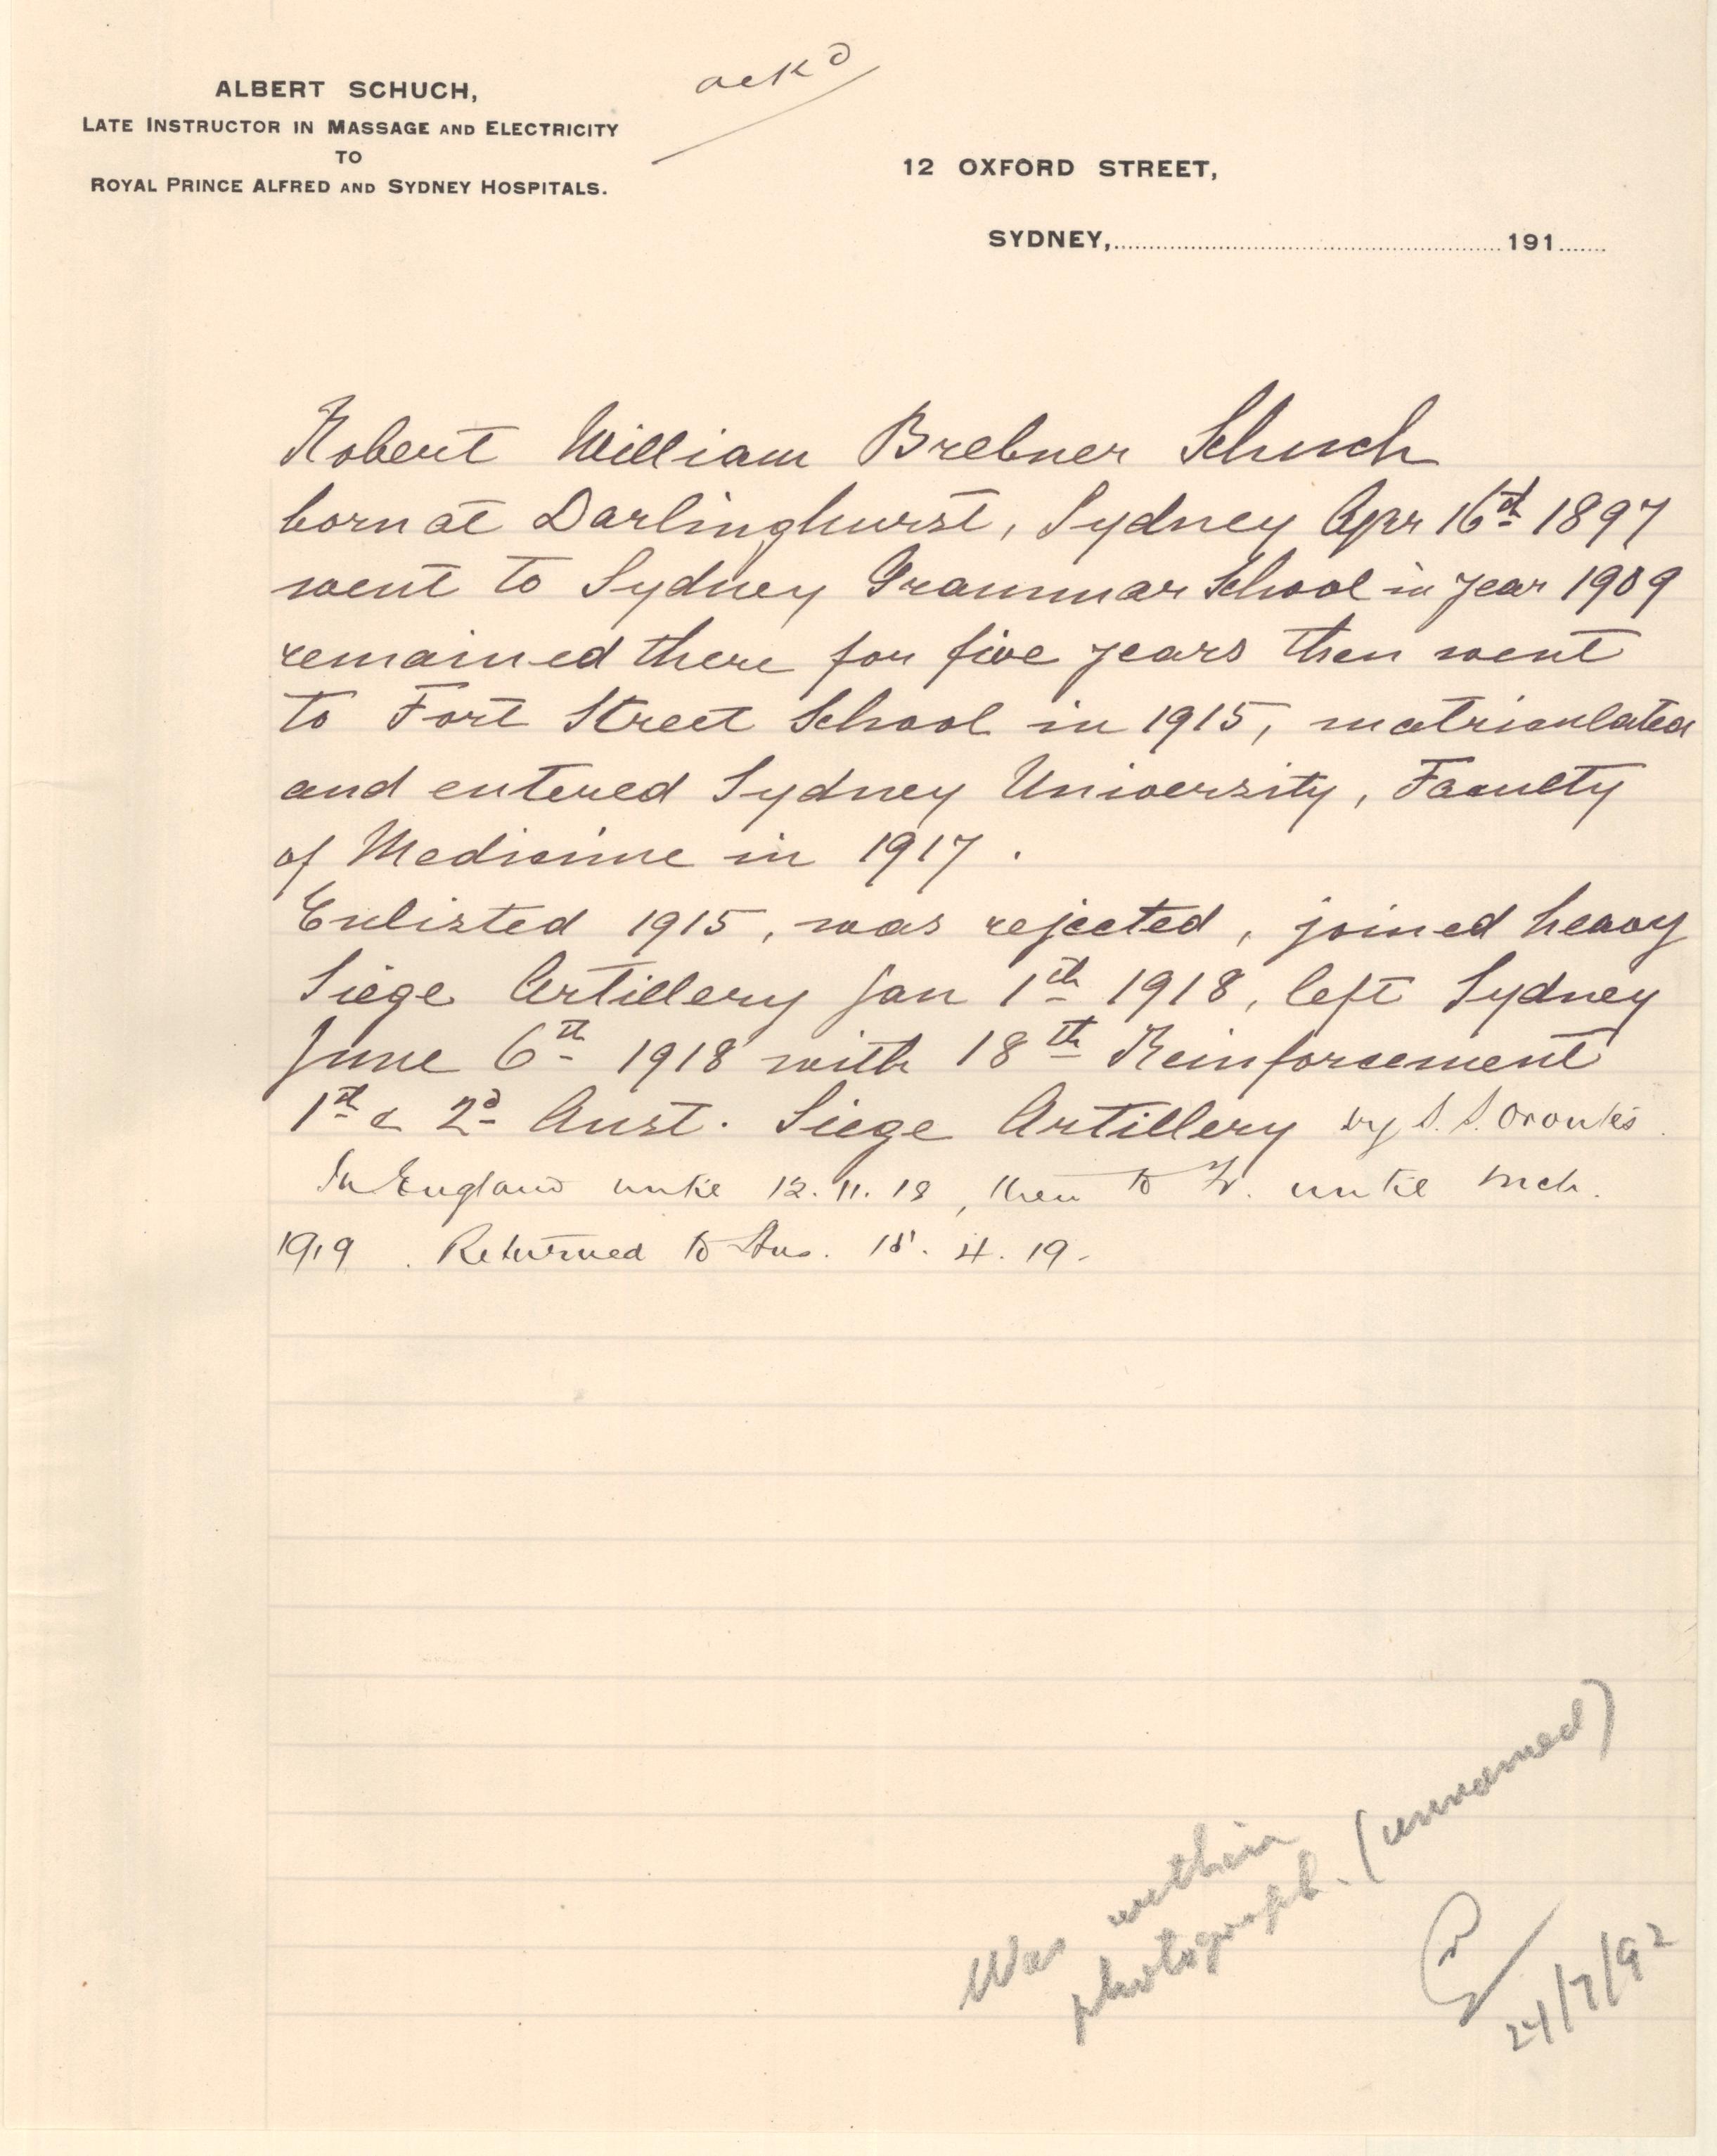 ack'd
ALBERT SCHUCH,
LATE INSTRUCTOR IN MASSAGE AND ELECTRICITY
TO
ROYAL PRINCE ALFRED AND SYDNEY HOSPITALS.
12 OXFORD STREET,
SYDNEY,..........191.....
Robert William Brebner Schuch
born at Darlinghurst, Sydney Apr 16th 1897
went to Sydney Grammar School in year 1909
remained there for five years then went
to Fort Street School in 1915, matriculated
and entered Sydney University, Faculty
of Medicine in 1917.
Enlisted 1915, was rejected, joined heavy
Siege Artillery Jan 1th 1918, left Sydney
June 6th 1918 with 18th Reinforcement
1st & 2d Aust. Siege Artillery by S.S. Orontes.
In England until 12.11.18, then to Fr. until Mch.
1919. Returned to Aus. 15.4.19.
Was within
photograph. (unnamed)
24/7/92